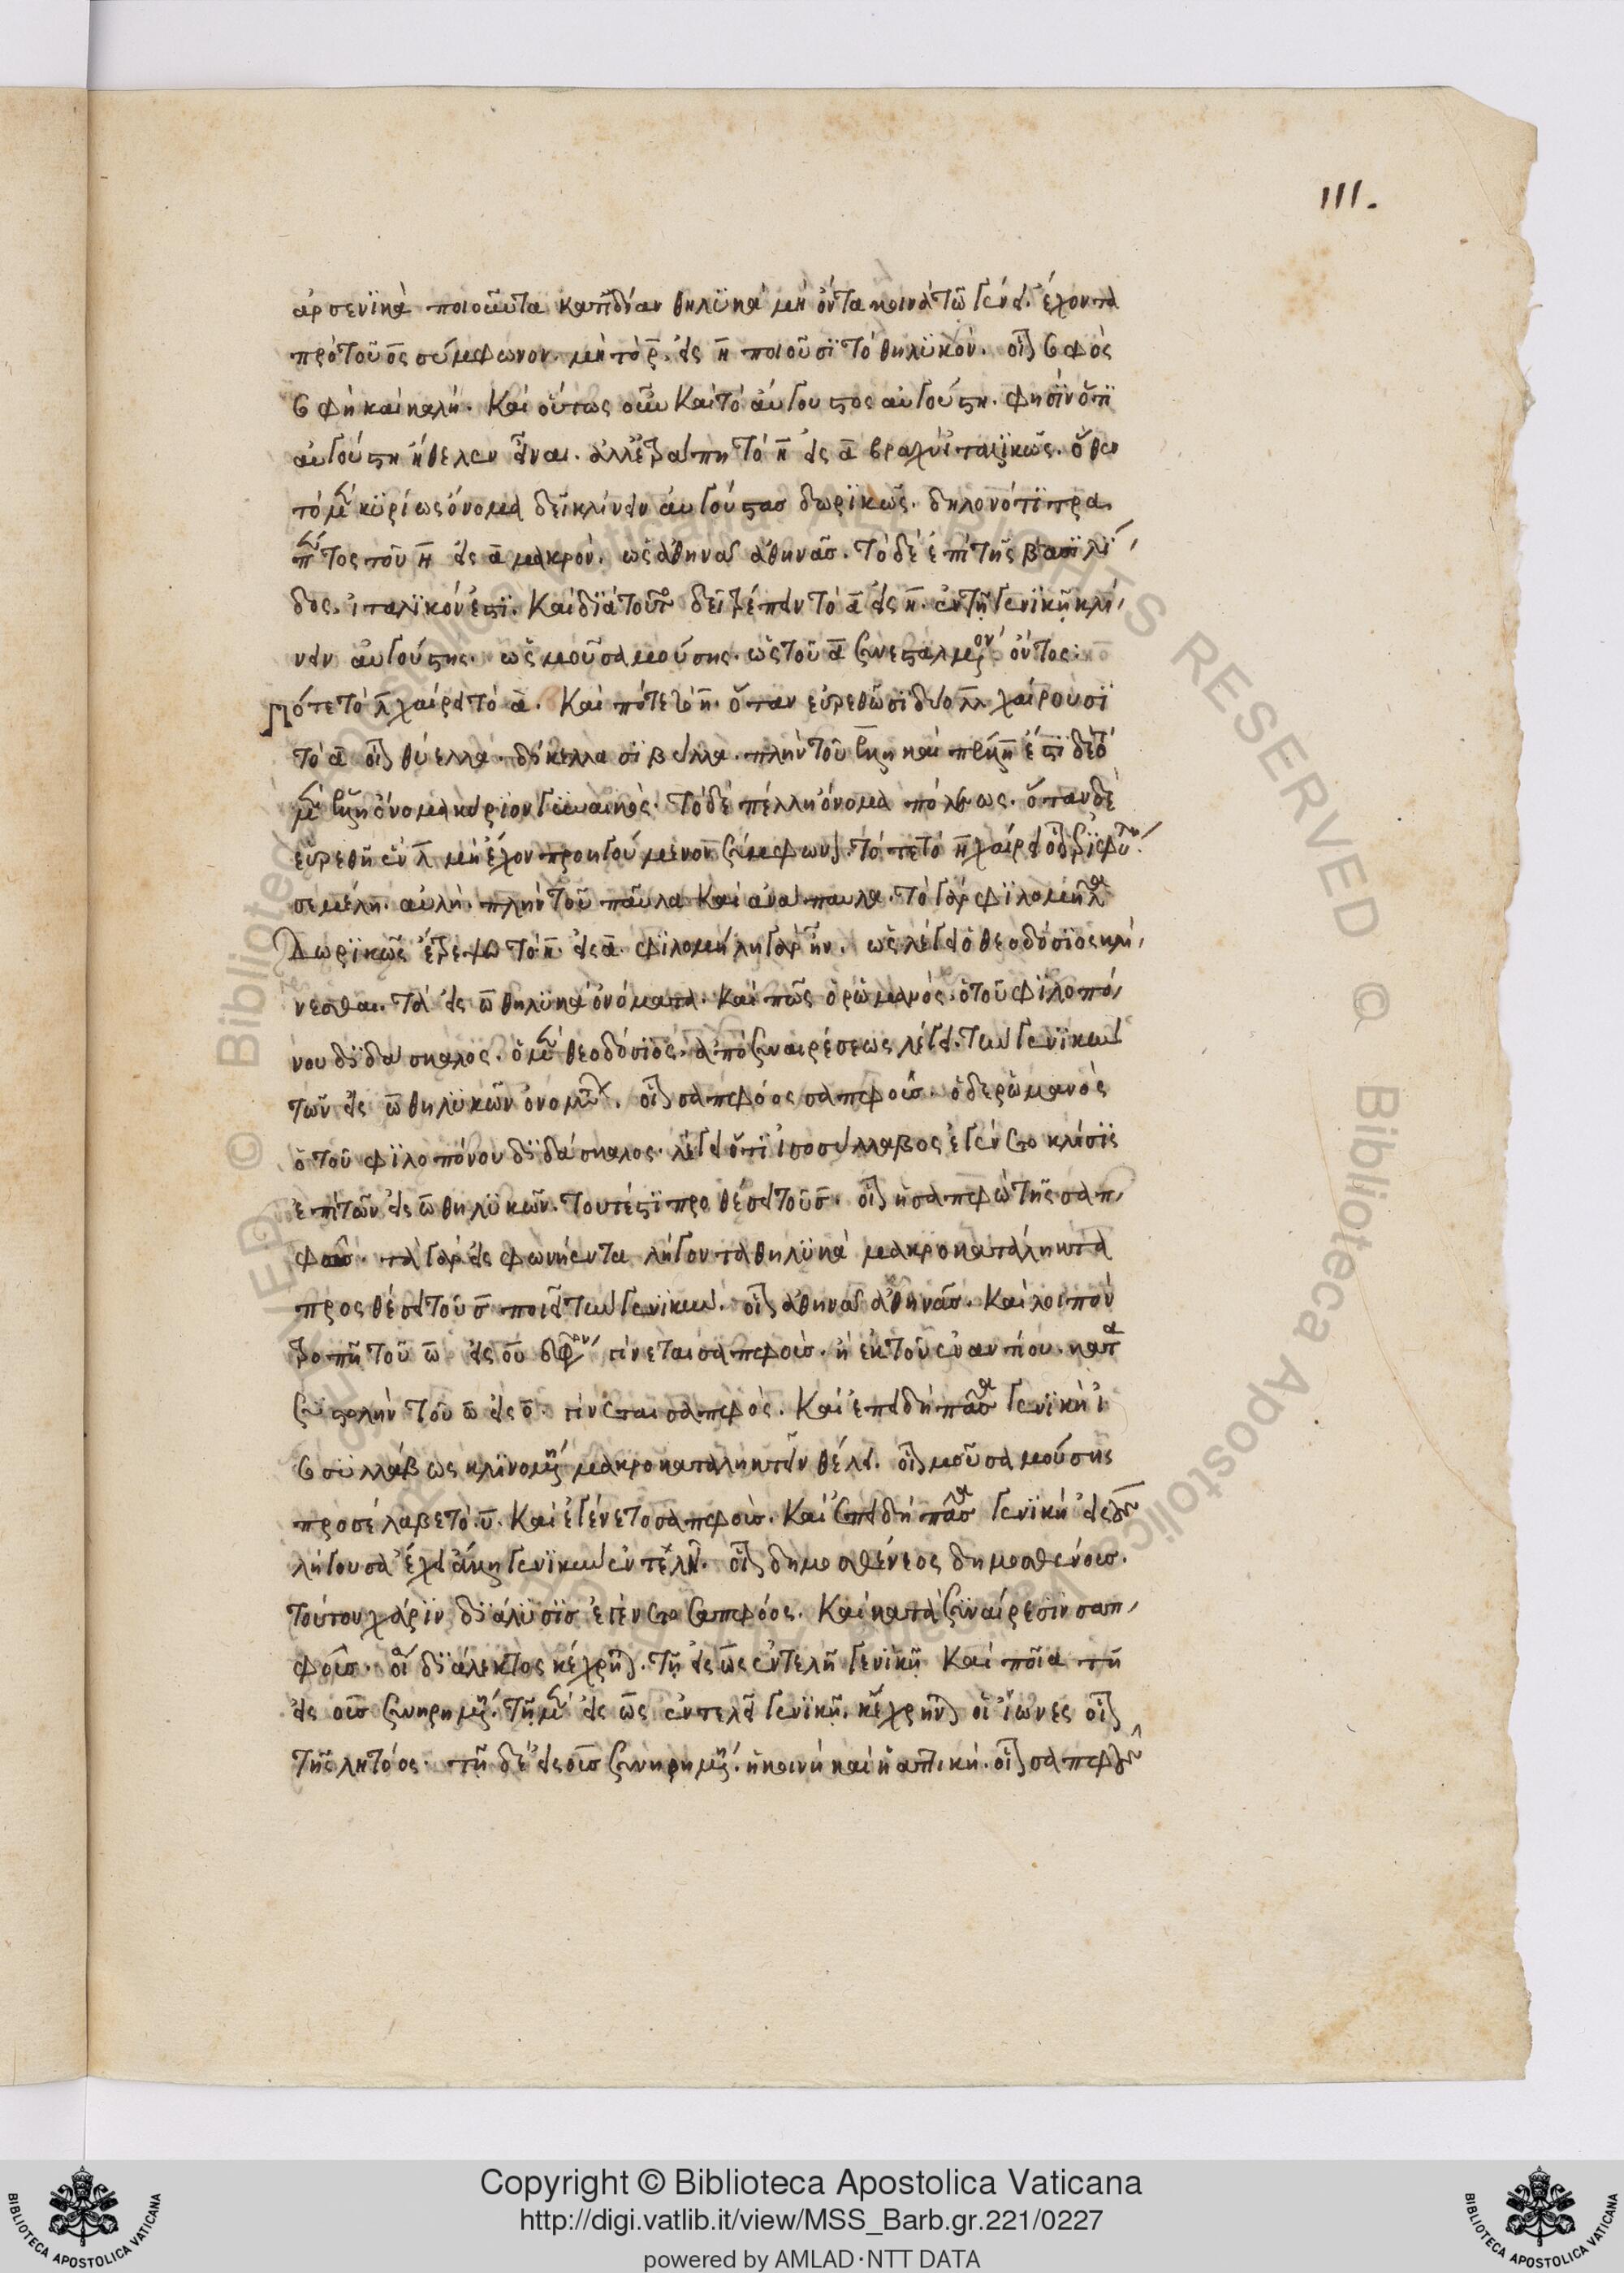 111.
ἀρσενϊκὰ ποιοῦντα κατ' ἰδίαν θηλϋκὰ μὴ ὄντα κοινὰ τῶ γένει. ἔχοντα
πρὸ τοῦ ο̅ς̅ σύμφωνον. μὴ τὸ ρ̅. εἰς η̅ ποιοῦσϊ τὸ θηλϋκόν. οἷον σοφὸς
σοφὴ καὶ καλή. Καὶ οὕτως οὖν Καὶ τὸ αὔγουστος αὐγούστη. φησϊν ὅτϊ
αὐγούστη ἤθελεν εἶναι. ἀλλ' ἐτράπη τὸ η̅ εἰς α̅ βραχὺ ἰταλϊκῶς. ὅθεν
τὸ μὲν κϋρίως ὄνομα δεῖ κλίνειν αὐγούστας δωρϊκῶς. δηλονότϊ τρα
πέντος τοῦ η̅ εἰς α̅ μακρόν. ὡς ἀθηνᾶ ἀθηνᾶς. Τὸ δὲ ἐπὶ τῆς βασϊλί
δος. ἰταλϊκόν ἐστϊ. Καὶ δϊὰ τοῦτο δεῖ τρέπειν τὸ α̅ εἰς η̅. ἐν τῆ γενϊκῆ κλί
νειν αὐγούστης. ὡς μοῦσα μούσης. ὡς τοῦ α̅ συνεσταλμένου ὄντος:
Πότε τὸ λ̅ χαίρει τὸ α̅. Καὶ πότε τὸ η̅. ὅταν εὑρεθῶσϊ δύο λ̅λ̅ χαίρουσϊ
τὸ α̅ οἷον θύελλα. δίκελλα σϊβύλλα. πλὴν τοῦ
ὄνομα κύρϊον γϋναικός. Τὸ δὲ πέλλη ὄνομα πόλεως. ὅταν δὲ
εὑρεθῆ ἓν λ̅ μὴ ἔχον προηγούμενον σύμφωνον. τότε τὸ η̅ χαίρει
σεμέλη. αὐλή. πλὴν τοῦ παῦλα Καὶ ἀνάπαυλα. Τὸ γὰρ φϊλομήλα
Δωρϊκῶς ἔτρεψε τὸ η̅ εἰς α̅. φϊλομήλη γὰρ ἦν. ὡς λέγει ὁ θεοδόσϊος κλί
νεσθαι. Τὰ εἰς ω̅ θηλϋκὰ ὀνόματα. Καὶ πῶς ὁ ῥωμανός. ὁ τοῦ φϊλοπό
νου δϊδάσκαλος. ὁ μὲν θεοδόσϊος. ἀπὸ συναιρέσεως λέγει. Τῶν γενϊκῶν
τῶν εἰς ω̅ θηλϋκῶν ὀνομάτων. οἷον σαπφόος σαπφοῦς. ὁ δὲ ῥωμανὸς
ὁ τοῦ φϊλοπόνου δϊδάσκαλος. λέγει ὅτϊ ἰσοσύλλαβος ἐγένετο κλίσϊς
ἐπὶ τῶν εἰς ω̅ θηλϋκῶν. Τουτέστϊ προσθέσει τοῦ σ̅. οἷον ἡ σαπφὼ τῆς σαπ
φοῦς. τὰ γὰρ εἰς φωνήεντα λήγοντα θηλϋκὰ μακροκατάληκτα
προσθέσει τοῦ σ̅ ποιεῖ τὴν γενϊκήν. οἷον ἀθηνᾶ ἀθηνᾶς. Καὶ λοιπὸν
τροπῆ τοῦ ω̅ εἰς ο̅υ̅ δίφθογγον γίνεται σαπφοῦς. ἢ ἐκ τοῦ ἐναντίου. κατὰ
συστολὴν τοῦ ω̅ εἰς ο̅. γίνεται σαπφός. Καὶ ἐπειδὴ πᾶσα γενϊκὴ ἰ
σοσϋλλάβως κλϊνομένη μακροκαταληκτεῖν θέλει. οἷον μοῦσα μούσης
προσέλαβε τὸ υ̅. Καὶ ἐγένετο σαπφοῦς. Καὶ ἐπειδὴ πᾶσα γενϊκὴ εἰς ο̅υ̅ς̅
λήγουσα ἔχει ἄλλην γενϊκὴν ἐντελῆ. οἷον δημοσθένεος δημοσθένους.
τούτου χάρϊν δϊάλϋσϊς ἐγένετο σαπφόος. Καὶ κατὰ συναίρεσϊν σαπ
φοῦς. ποία δϊάλεκτος κέχρηται. Τῆ εἰς ο̅ς̅ ἐντελῆ γενϊκῆ Καὶ ποῖα τῆ
εἰς ο̅υ̅ς̅ συνηρημένη. Τῆ μὲν εἰς ο̅ς̅ ἐντελεῖ γενϊκῆ. κέχρηνται οἱ ἴωνες οἷον
τῆς λητόος. τῆ δὲ εἰς ο̅υ̅ς̅ συνηρημένη. ἡ κοινὴ καὶ ἡ ἀττικὴ. οἷον σαπφοῦς
Copyright © Biblioteca Apostolica Vaticana
http://digi.vatlib.it/view/MSS_Barb.gr.221/0227
powered by AMLAD·NTT DATA
BIBLIOTECA APOSTOLICA VATICANA
BIBLIOTECA APOSTOLICA VATICANA